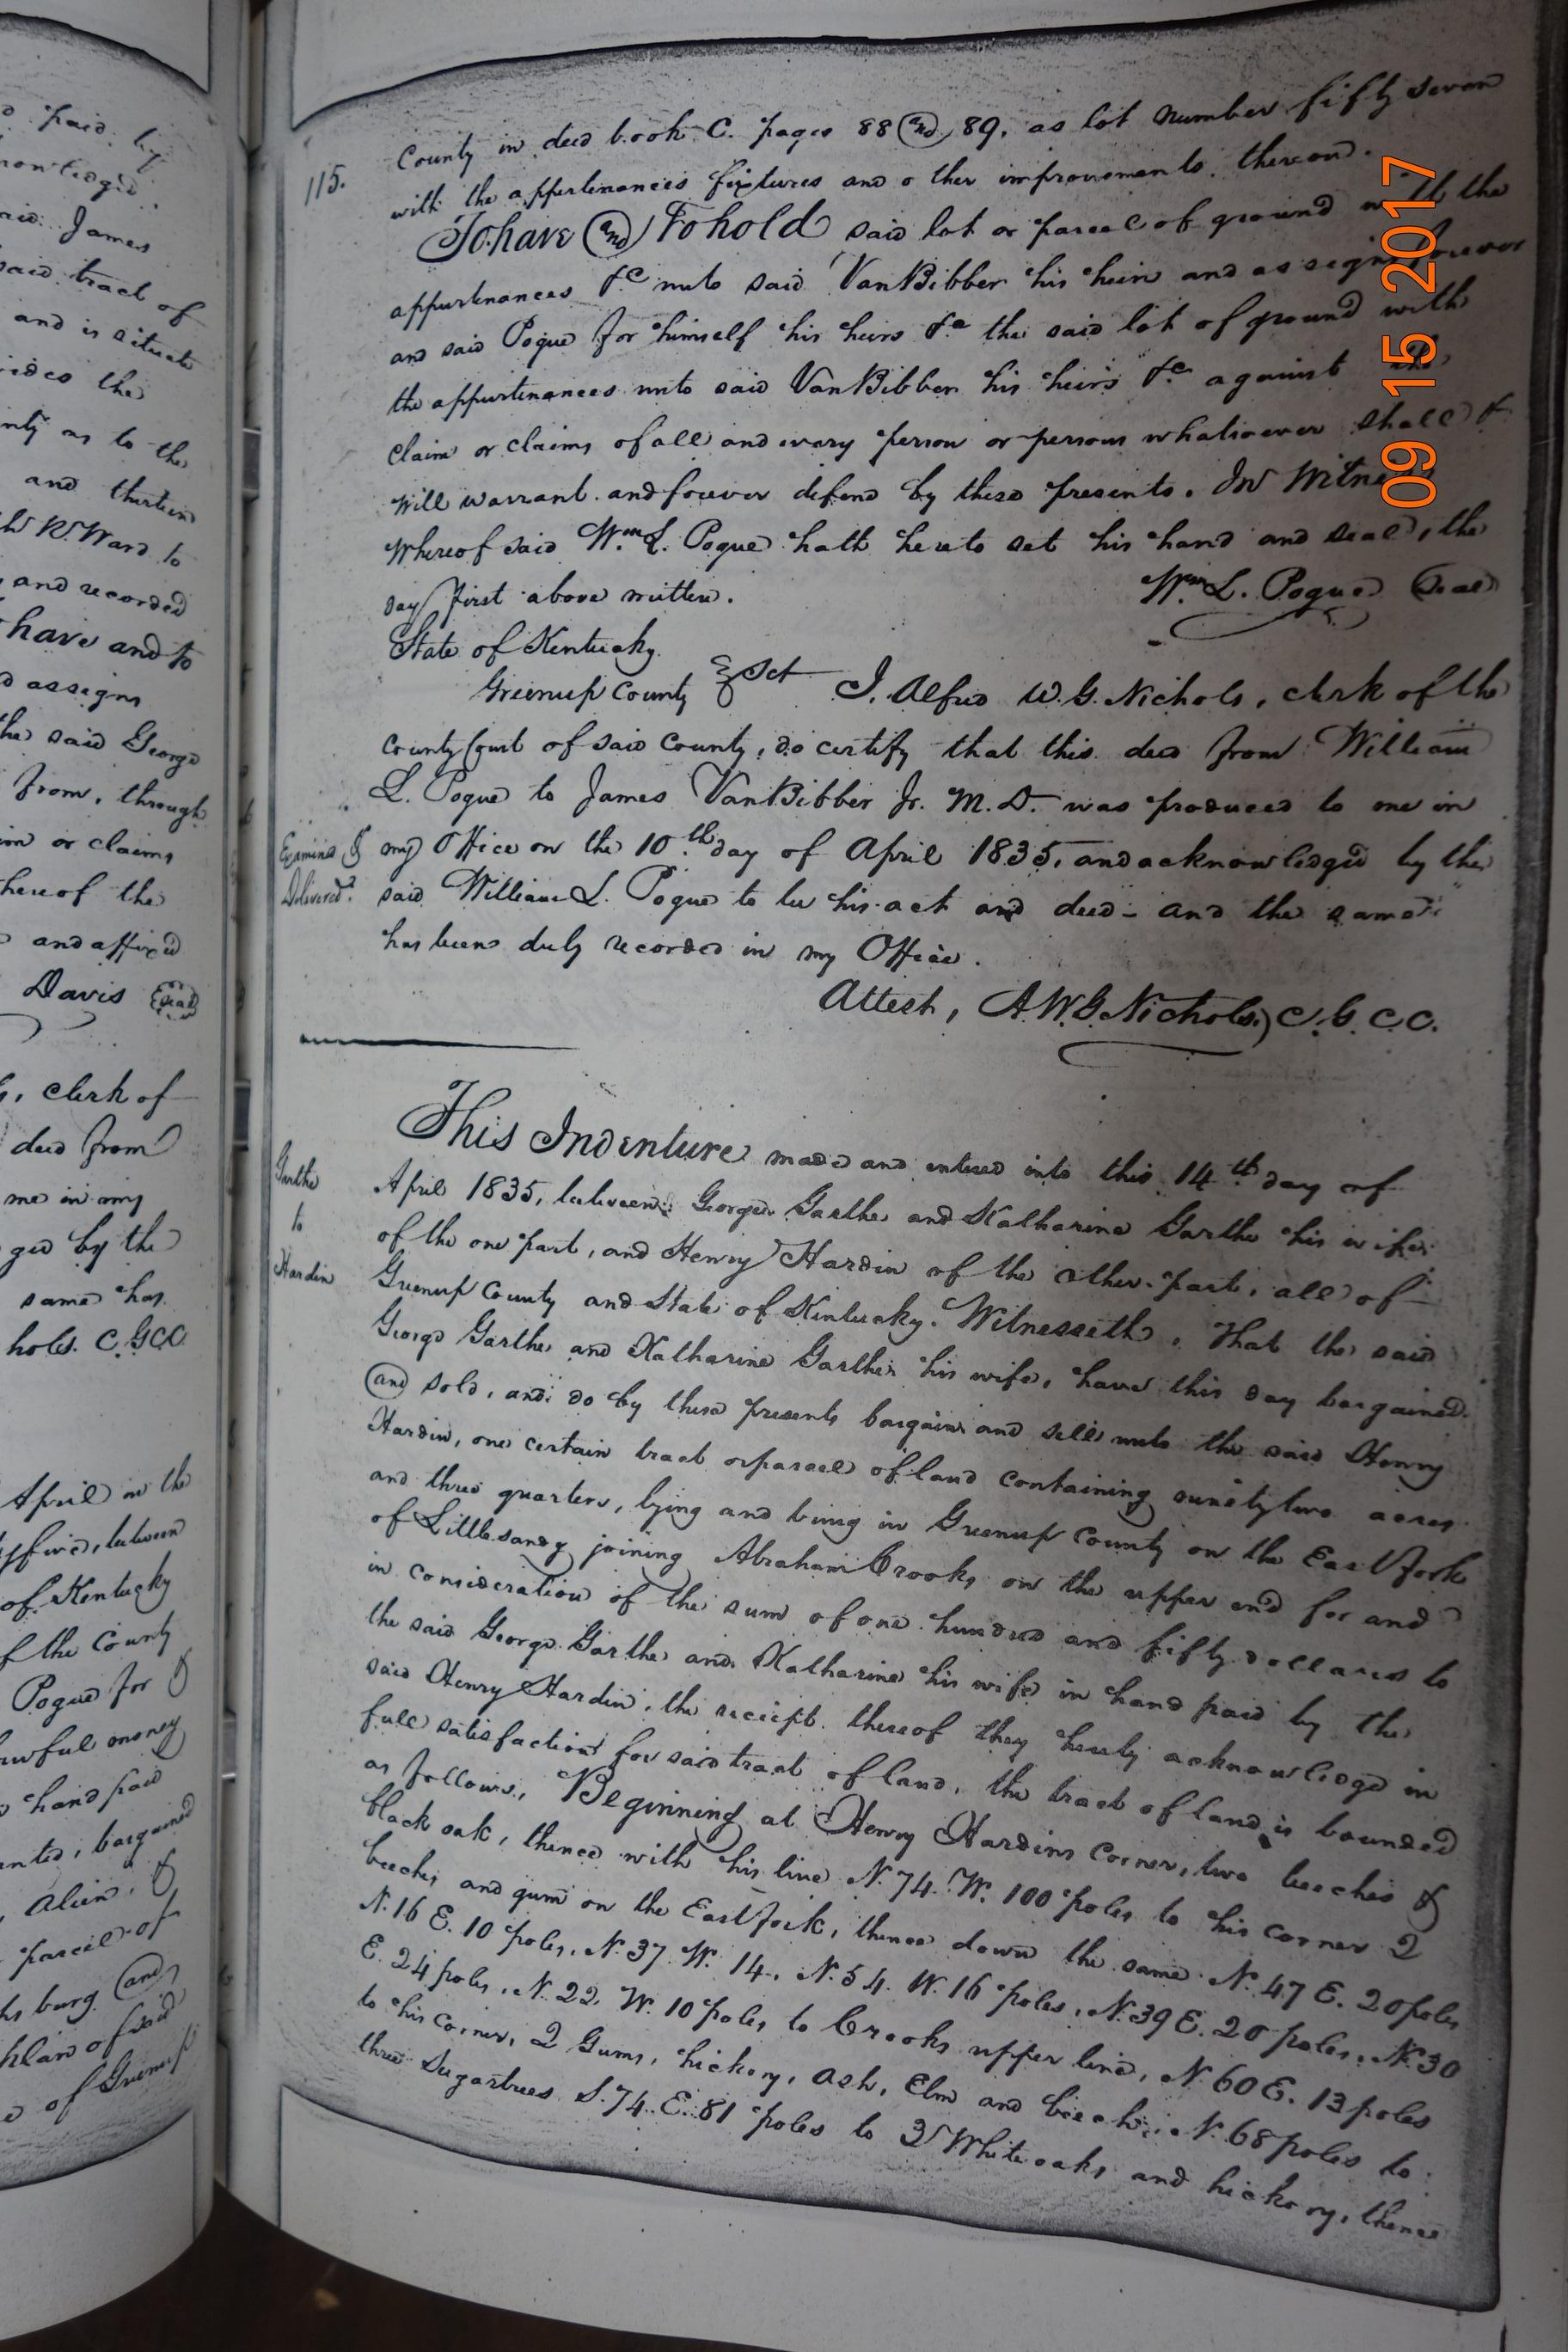 d paid by
nowledged
aid James
said tract of
and is situate
sides the
nty as to the
and thirteen
W. Ward to
and recorded
have and to
d assigns
the said George
from, through
im or claims
hereof the
and affixed
Davis Seal
clerk of
deed from
me in my
ged by the
same has
hols. C.G.C.C.
April in the
ty five, between
of Kentucky
f the County
Pogue for &
awful money
hand paid
ents, bargained
alien, &
parcel of
burg and
of said
of Greenup
115.
County in deed book C. pages 88 and 89, as lot number fifty seven
with the appertenances fixtures and other improvements thereon.
To have and To hold said lot or parcel of ground with the
appurtenances &c unto said VanBibber his heirs and assigns forever
and said Pogue for himself his heirs &c the said lot of ground with
the appurtenances unto said VanBibber his heirs &c against the
claim or claims of all and every person or persons whatsoever shall &
will warrant and forever defend by these presents. In Witness
Whereof said Wm L. Pogue hath hereto set his hand and seal, the
day first above written.
Wm L. Pogue Seal
State of Kentucky
Greenup County Sct I, Alfred W. G. Nichols, clerk of the
County Court of said County, do certify that this deed from William
L. Pogue to James VanBibber Jr. M.D. was produced to me in
Examined &
Delivered.
my Office on the 10th day of April 1835, and acknowledged by the
said William L. Pogue to be his act and deed - and the same
has been duly recorded in my Office.
Attest, A.W.G. Nichols, C.G.C.C.
Garthe
to
Hardin
This Indenture made and entered into this 14th day of
April 1835, between George Garthe and Katharine Garthe his wife
of the one part, and Henry Hardin of the other part, all of
Greenup County and State of Kentucky. Witnesseth, That the said
George Garthe and Katharine Garthe his wife, have this day bargained
and sold, and do by these presents bargain and sell unto the said Henry
Hardin, one certain tract or parcel of land containing ninety two acres
and three quarters, lying and being in Greenup County on the East fork
of Little sandy joining Abraham Crooks on the upper end for and
in consideration of the sum of one hundred and fifty dollars to
the said George Garthe and Katharine his wife in hand paid by the
said Henry Hardin, the receipt thereof they hereby acknowledge in
full satisfaction for said tract of land, the tract of land is bounded
as follows, Beginning at Henry Hardins corner, two beeches &
black oak, thence with his line N. 74. W. 100 poles to his corner 2
beeches and gum on the East fork, thence down the same N. 47 E. 20 poles
N. 16 E. 10 poles, N. 37. W. 14., N. 54. W. 16 poles, N. 39 E. 20 poles, N. 30
E. 24 poles, N. 22. W. 10 poles to Crooks upper line, N. 60 E. 13 poles
to his corner, 2 Gums, hickory, ash, Elm and beech, N. 68 poles to
three Sugartrees S. 74. E. 81 poles to 3 White oaks and hickory, thence
09 15 2017